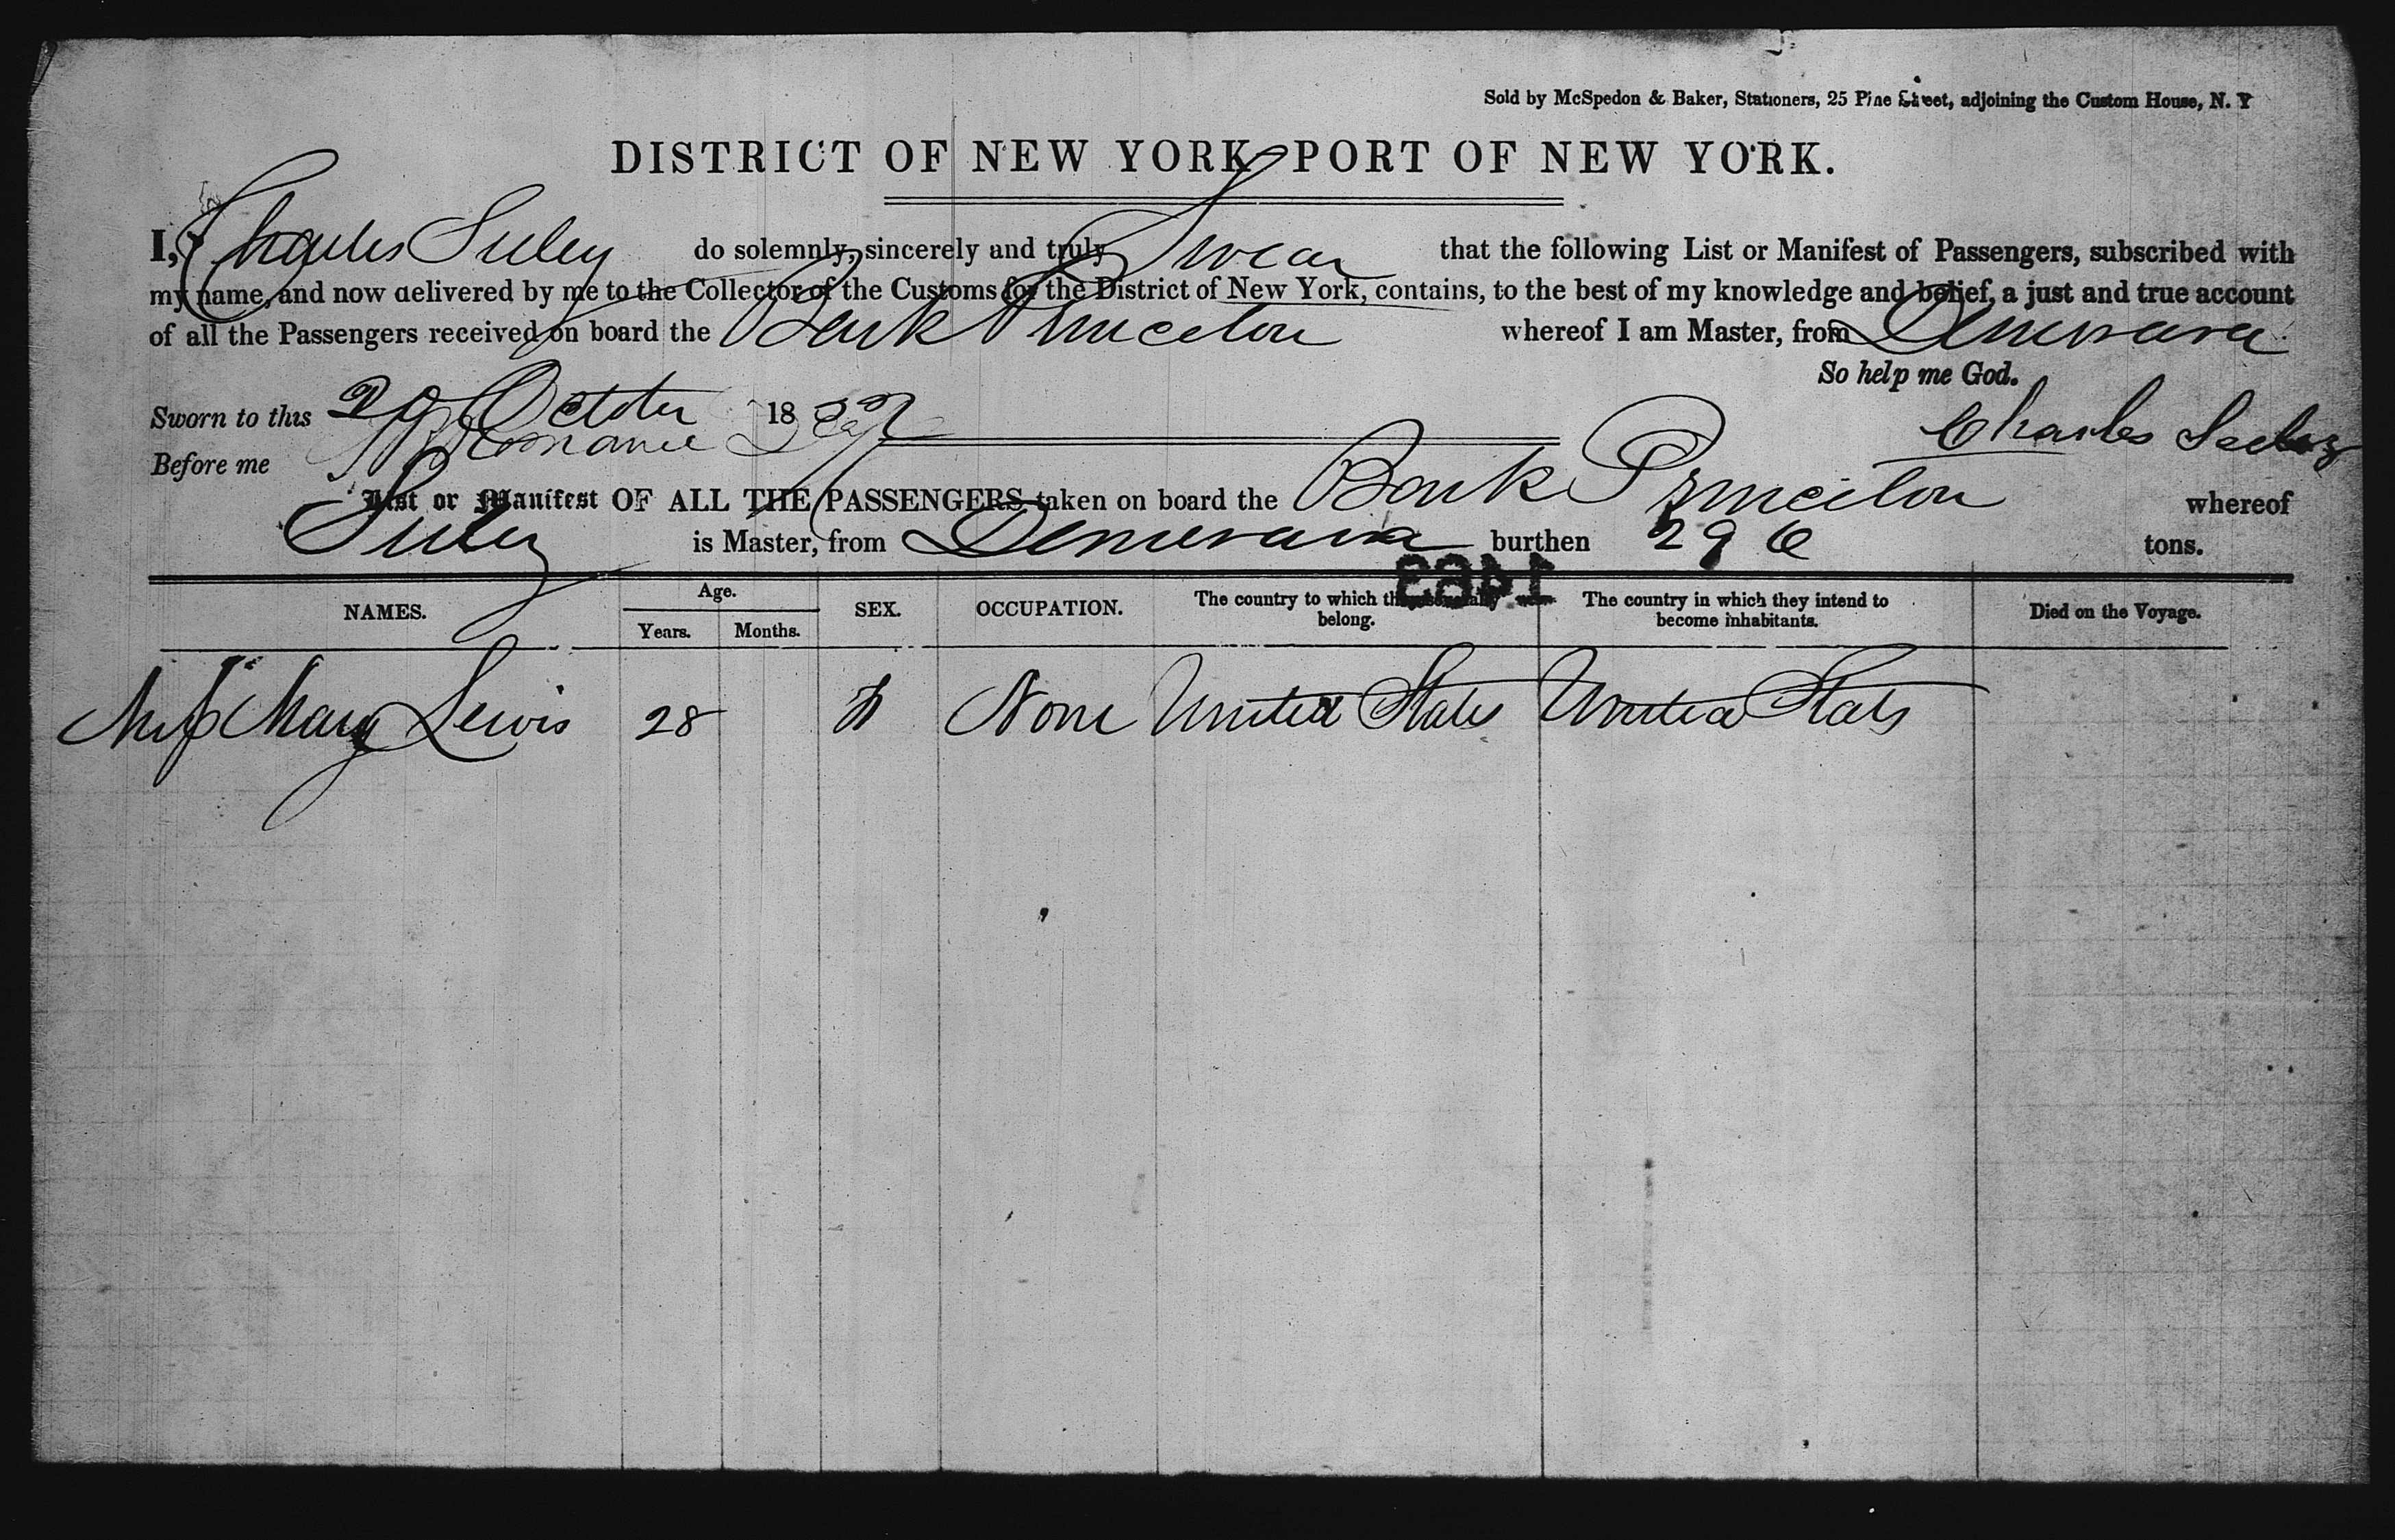 Sold by McSpedon & Baker, Stationers, 25 Pine Street, adjoining the Custom House, N. Y
DISTRICT OF NEW YORK PORT OF NEW YORK.
I, Charles Seeley do solemnly, sincerely and truly Swear that the following List or Manifest of Passengers, subscribed with
my name, and now delivered by me to the Collector of the Customs for the District of New York, contains, to the best of my knowledge and belief, a just and true account
of all the Passengers received on board the Bark Princeton whereof I am Master, from Demerara
So help me God.
Sworn to this 29 October 18 Charles Seeley
Before me
List or Manifest OF ALL THE PASSENGERS taken on board the Bark Princeton whereof
Seeley is Master, from Demerara burthen 296 tons.
1463
NAMES. Age. Years. Months. SEX. OCCUPATION. The country to which they severally belong. The country in which they intend to become inhabitants. Died on the Voyage.
Miss Mary Lewis 28 None United States United States